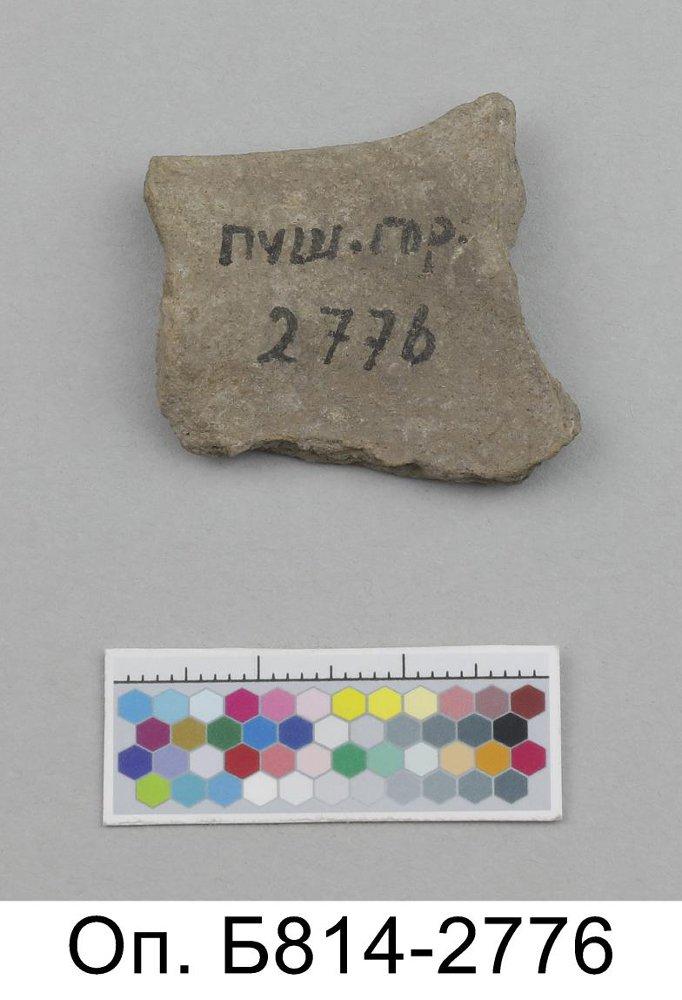 пуш.гор.
2776
Оп. Б814-2776